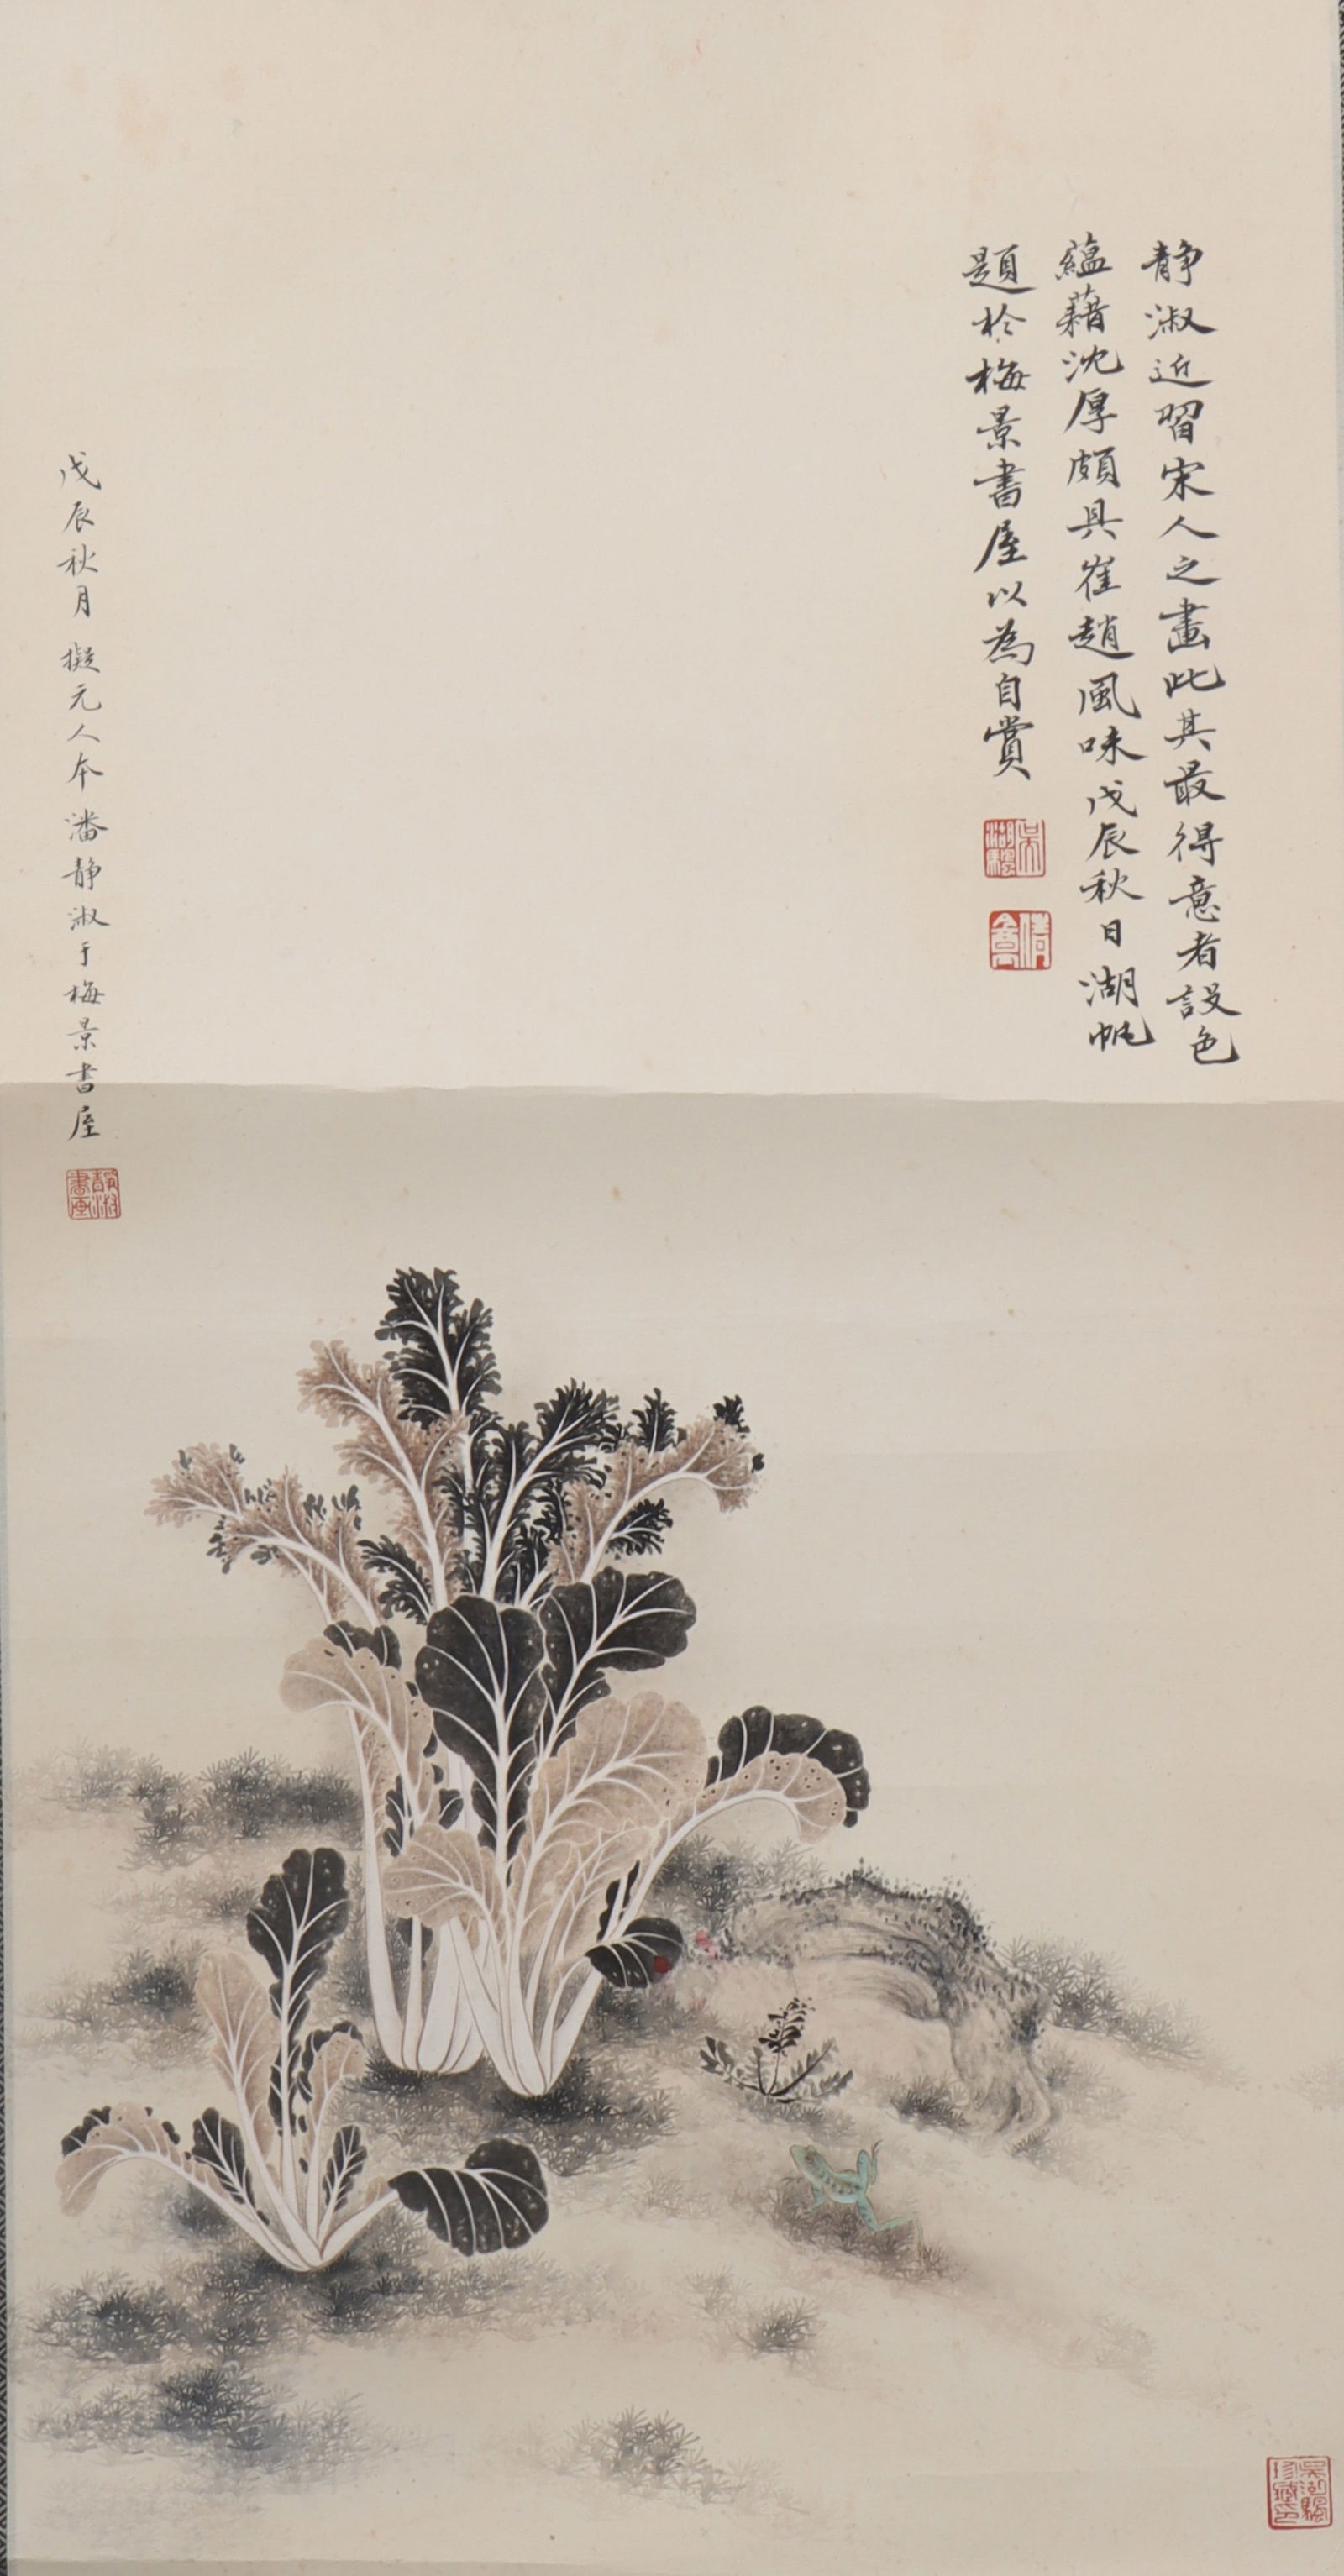 静淑近習宋人之畫此其最得意者設色
蘊藉沈厚頗具崔趙風味戊辰秋日湖帆
題於梅景書屋以為自賞
吳湖颿
倩盦
戊辰秋月擬元人本潘静淑于梅景書屋
靜淑書画
吳湖颿珍藏印